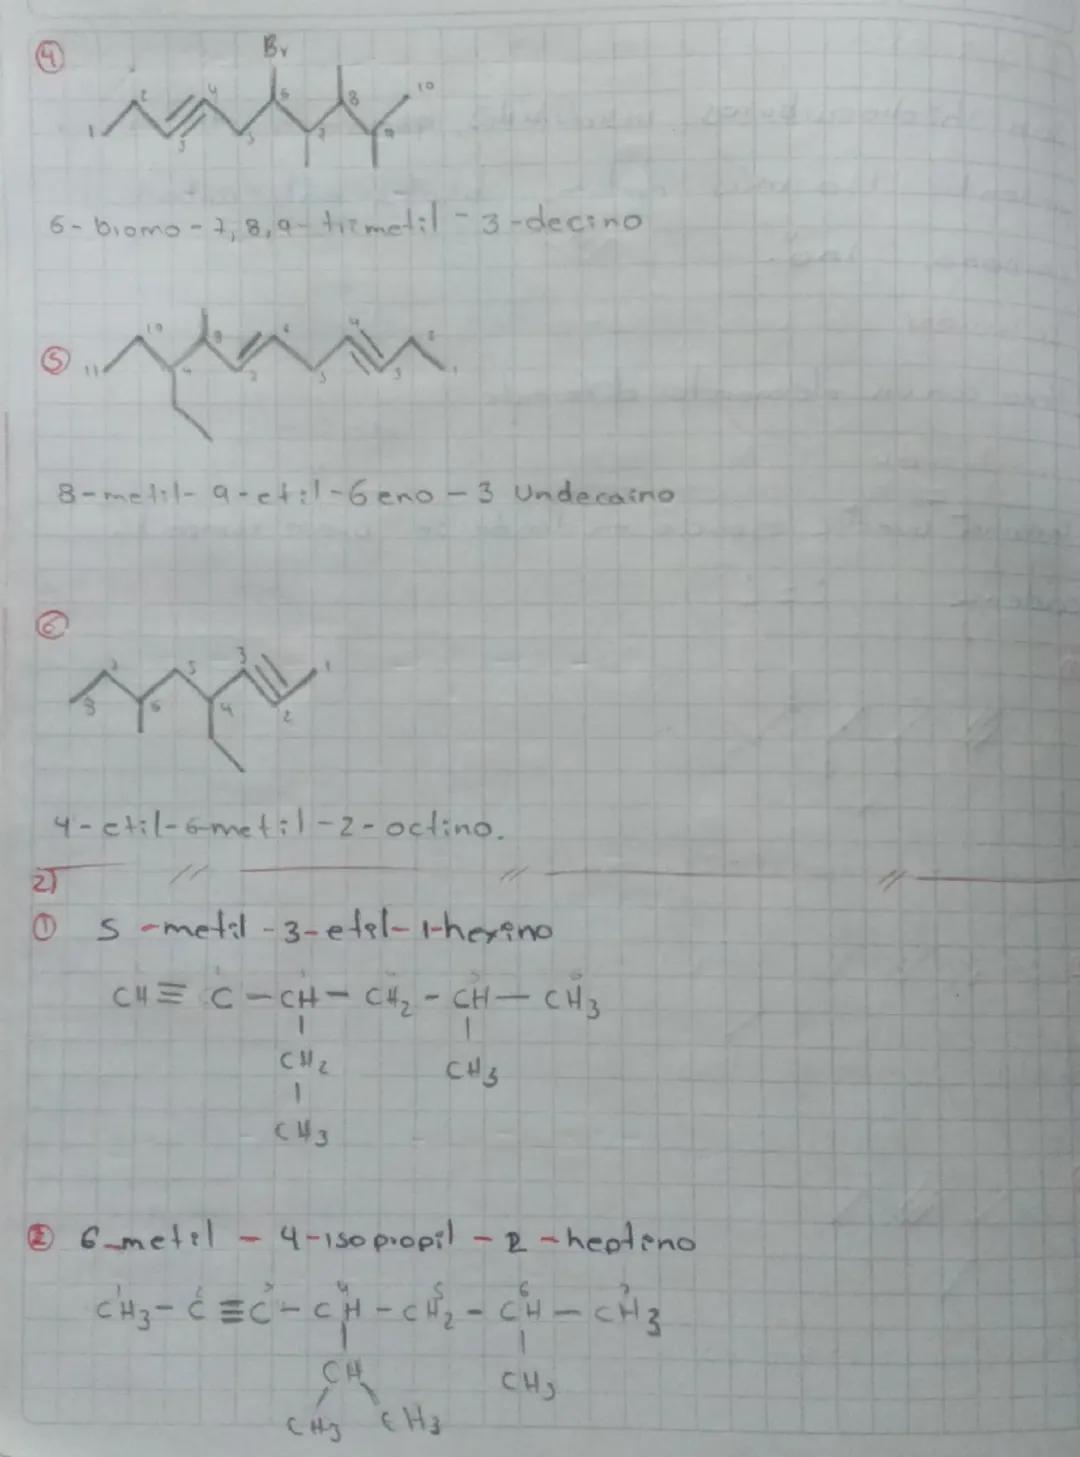 4
Br
1 2 3 4 5 6 7 8 9 10
6-bromo-7,8,9-trimetil-3-decino
5
11 10 9 8 7 6 5 4 3 2 1
8-metil-9-etil-6eno-3 Undecaino
6
8 7 6 5 4 3 2 1
4-etil-6-metil-2-octino.
2)
1 5-metil-3-etil-1-hexino
CH≡C-CH-CH2-CH-CH3
CH2 CH3
CH3
2 6-metil-4-isopropil-2-heptino
1 2 3 4 5 6 7
CH3-C≡C-CH-CH2-CH-CH3
CH CH3
CH3 CH3